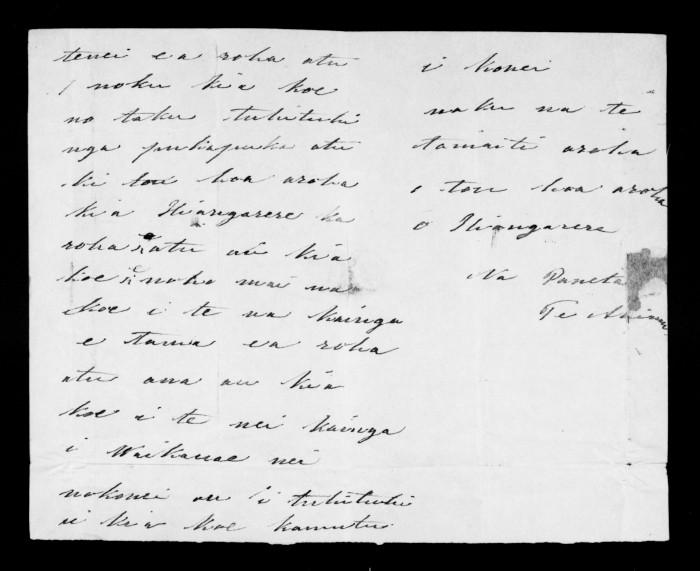 tenei e a roha atu
noku kia koe
no taku tuhituhi
nga pukapuka atu
ki tou hoa aroha
kia Hiangarere ka
roha atu au kia
koe i noho mai na
koe i te na kainga
e tama e a roha
atu ana au kia
koe i te nei kainga
i Waikanae nei
nokonei au i tuhituhi
ai kia koe kamutu
i konei
naku na te
tamaiti aroha
i tou hoa aroha
o Hiangarere
Na Paneta
Te